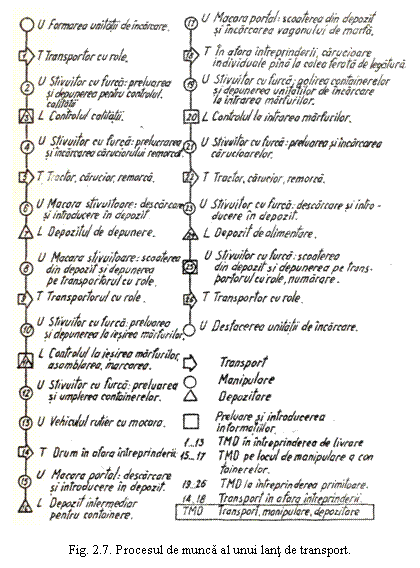 U Formarea unității de încărcare.
1 T Transportor cu role.
2 U Stivuitor cu furcă: preluarea
și depunerea pentru controlul
calității
3 L Controlul calității.
4 U Stivuitor cu furcă: prelucrarea
și încărcarea căruciorului remorcă.
5 T Tractor, cărucior, remorcă.
6 U Macara stivuitoare: descărcare
și introducere în depozit.
7 L Depozitul de depunere.
8 U Macara stivuitoare: scoaterea
din depozit și depunerea
pe transportorul cu role.
9 T Transportorul cu role.
10 U Stivuitor cu furcă: preluarea
și depunerea la ieșirea mărfurilor.
L Controlul la ieșirea mărfurilor,
asamblarea, marcarea.
12 U Stivuitor cu furcă: preluarea
și umplerea containerelor.
13 U Vehiculul rutier cu macara.
14 T Drum în afara întreprinderii
15 U Macara portal: descărcare
și introducere în depozit.
L Depozit intermediar
pentru containere.
17 U Macara portal: scoaterea din depozit
și încărcarea vagonului de marfă.
18 T În afara întreprinderii, cărucioare
individuale pînă la calea ferată de legătură.
19 U Stivuitor cu furcă: golirea containerelor
și depunerea unităților de încărcare
la intrarea mărfurilor.
20 L Controlul la intrarea mărfurilor.
21 U Stivuitor cu furcă: preluarea și încărcarea
cărucioarelor.
22 T Tractor, cărucior, remorcă.
23 U Stivuitor cu furcă: descărcare și intro-
ducere în depozit.
24 L Depozit de alimentare.
25 U Stivuitor cu furcă: scoaterea
din depozit și depunerea pe trans-
portorul cu role, numărare.
26 T Transportor cu role.
U Desfacerea unității de încărcare.
Transport
Manipulare
Depozitare
Preluare și introducerea
informațiilor.
1...13 TMD în întreprinderea de livrare
15...17 TMD pe locul de manipulare a con-
tainerelor.
19...26 TMD la întreprinderea primitoare.
14, 18 Transport în afara întreprinderii.
TMD Transport, manipulare, depozitare
Fig. 2.7. Procesul de muncă al unui lanț de transport.